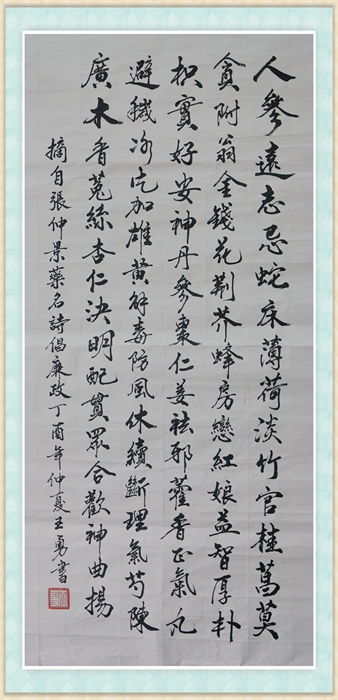 人參遠志忌蛇床薄荷淡竹官桂萵莫
貪附翁金錢花荊芥蜂房戀紅娘益智厚朴
枳實好安神丹參棗仁姜祛邪藿香正氣丸
避穢冰片加雄黄解毒防風休續斷理氣芍陳
廣木香菟絲杏仁決明配貫眾合歡神曲揚
摘自張仲景藥名詩倡廉政丁酉年仲夏王勇書